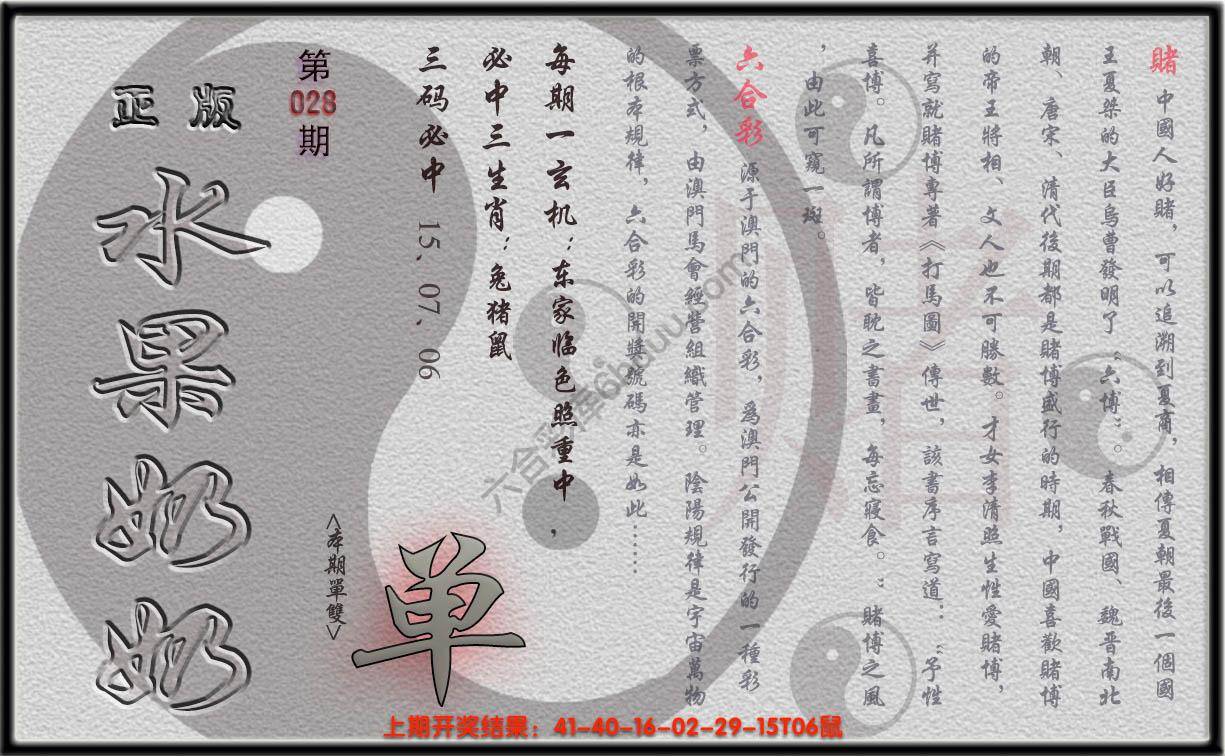 賭 中國人好賭，可以追溯到夏商，相傳夏朝最後一個國
王夏桀的大臣烏曹發明了“六博”。春秋戰國、魏晋南北
朝、唐宋、清代後期都是賭博盛行的時期，中國喜歡賭博
的帝王將相、文人也不可勝數。才女李清照生性愛賭博，
并寫就賭博專著《打馬圖》傳世，該書序言寫道：“予性
喜博。凡所謂博者，皆耽之書畫，每忘寢食。”賭博之風
，由此可窺一斑。
六合彩 源于澳門的六合彩，爲澳門公開發行的一種彩
票方式，由澳門馬會經營組織管理。陰陽規律是宇宙萬物
的根本規律，六合彩的開獎號碼亦是如此……
每期一玄机：东家临色照重中，
必中三生肖：兔猪鼠
三码必中 15、07、06
第
028
期
正版
水果奶奶
<本期單雙>
单
六合彩库6hduu.com
上期开奖结果：41-40-16-02-29-15T06鼠